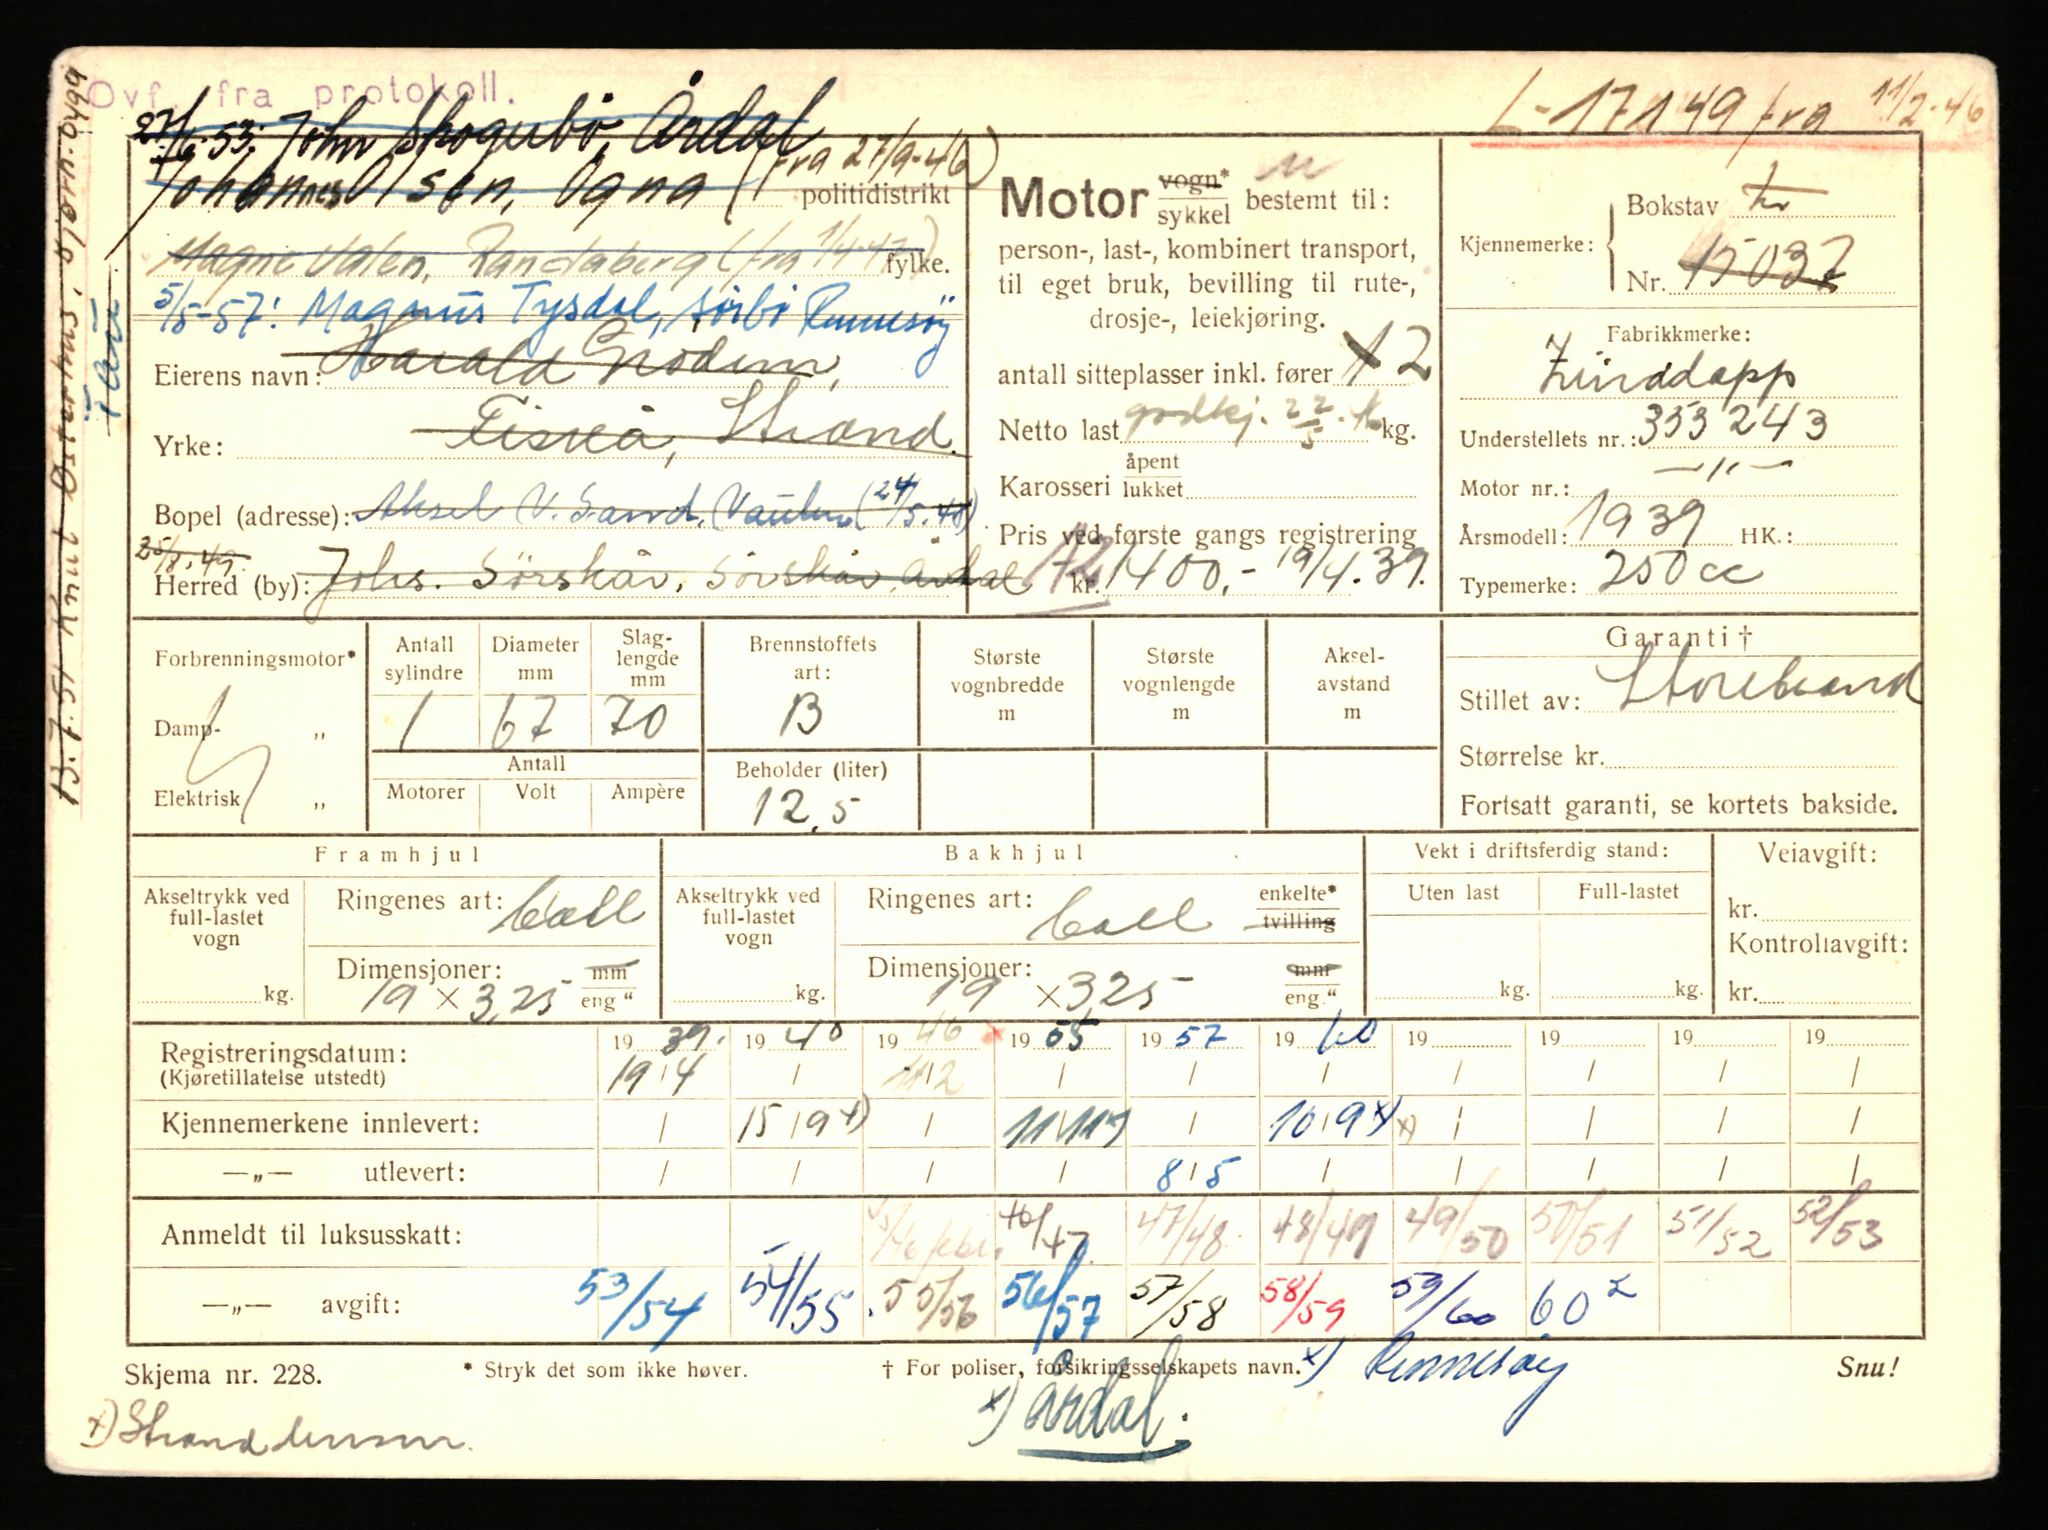 Ovf. fra protokoll.
L-17149 fra 11/2-46
27/6.53: John Skogubö, Årdal
Johannes Olsen, Ogna (fra 27/9-46)
politidistrikt
Magne Valen, Randaberg (fra 1/4-47)
fylke.
5/5-57: Magnus Tysdal, Sörbö Rennesöy
Eierens navn: Harald Grödem,
Yrke: Fiskå, Strand.
Bopel (adresse): Aksel V. Sand, Vaulen (24/5.48)
25/8.49.
Herred (by): Johs. Sörskår, Sörskår, Årdal
Tau
Motor vogn* sykkel bestemt til:
person-, last-, kombinert transport,
til eget bruk, bevilling til rute-,
drosje-, leiekjøring.
antall sitteplasser inkl. fører 2
Netto last godkj. 22/5 kg.
Karosseri åpent lukket
Pris ved første gangs registrering
kr. 1400,- 19/4.39.
Kjennemerke: Bokstav
Nr. 15037
Fabrikkmerke:
Zündapp
Understellets nr.: 353243
Motor nr.: —„—
Årsmodell: 1939 HK.:
Typemerke: 250cc
Forbrenningsmotor*
Damp- „
Elektrisk „
Antall sylindre 1
Diameter mm 67
Slaglengde mm 70
Antall
Motorer Volt Ampère
Brennstoffets art: B
Beholder (liter) 12,5
Største vognbredde m
Største vognlengde m
Akselavstand m
Garanti †
Stillet av: Storebrand
Størrelse kr.
Fortsatt garanti, se kortets bakside.
Framhjul
Akseltrykk ved full-lastet vogn kg.
Ringenes art: Ball
Dimensjoner: 19 x 3,25 mm eng "
Bakhjul
Akseltrykk ved full-lastet vogn kg.
Ringenes art: Ball enkelte* tvilling
Dimensjoner: 19 x 3,25 mm eng."
Vekt i driftsferdig stand:
Uten last Full-lastet
kg. kg.
Veiavgift:
kr.
Kontrollavgift:
kr.
Registreringsdatum: 1939. 1940 1946 1955 1957 1960 19 19 19 19
(Kjøretillatelse utstedt) 19/4 / 11/2 / / / / / / /
Kjennemerkene innlevert: / 15/9 x) / 11/11 x) / 10/9 x) x) / / / /
—„— utlevert: / / / / 8/5 / / / / /
Anmeldt til luksusskatt: 46/47 47/48 48/49 49/50 50/51 51/52 52/53
—„— avgift: 53/54 54/55. 55/56 56/57 57/58 58/59 59/60 60 2
Skjema nr. 228. * Stryk det som ikke høver. † For poliser, forsikringsselskapets navn. x) Rennesøy Snu!
x) Strand lensm. x) Årdal.